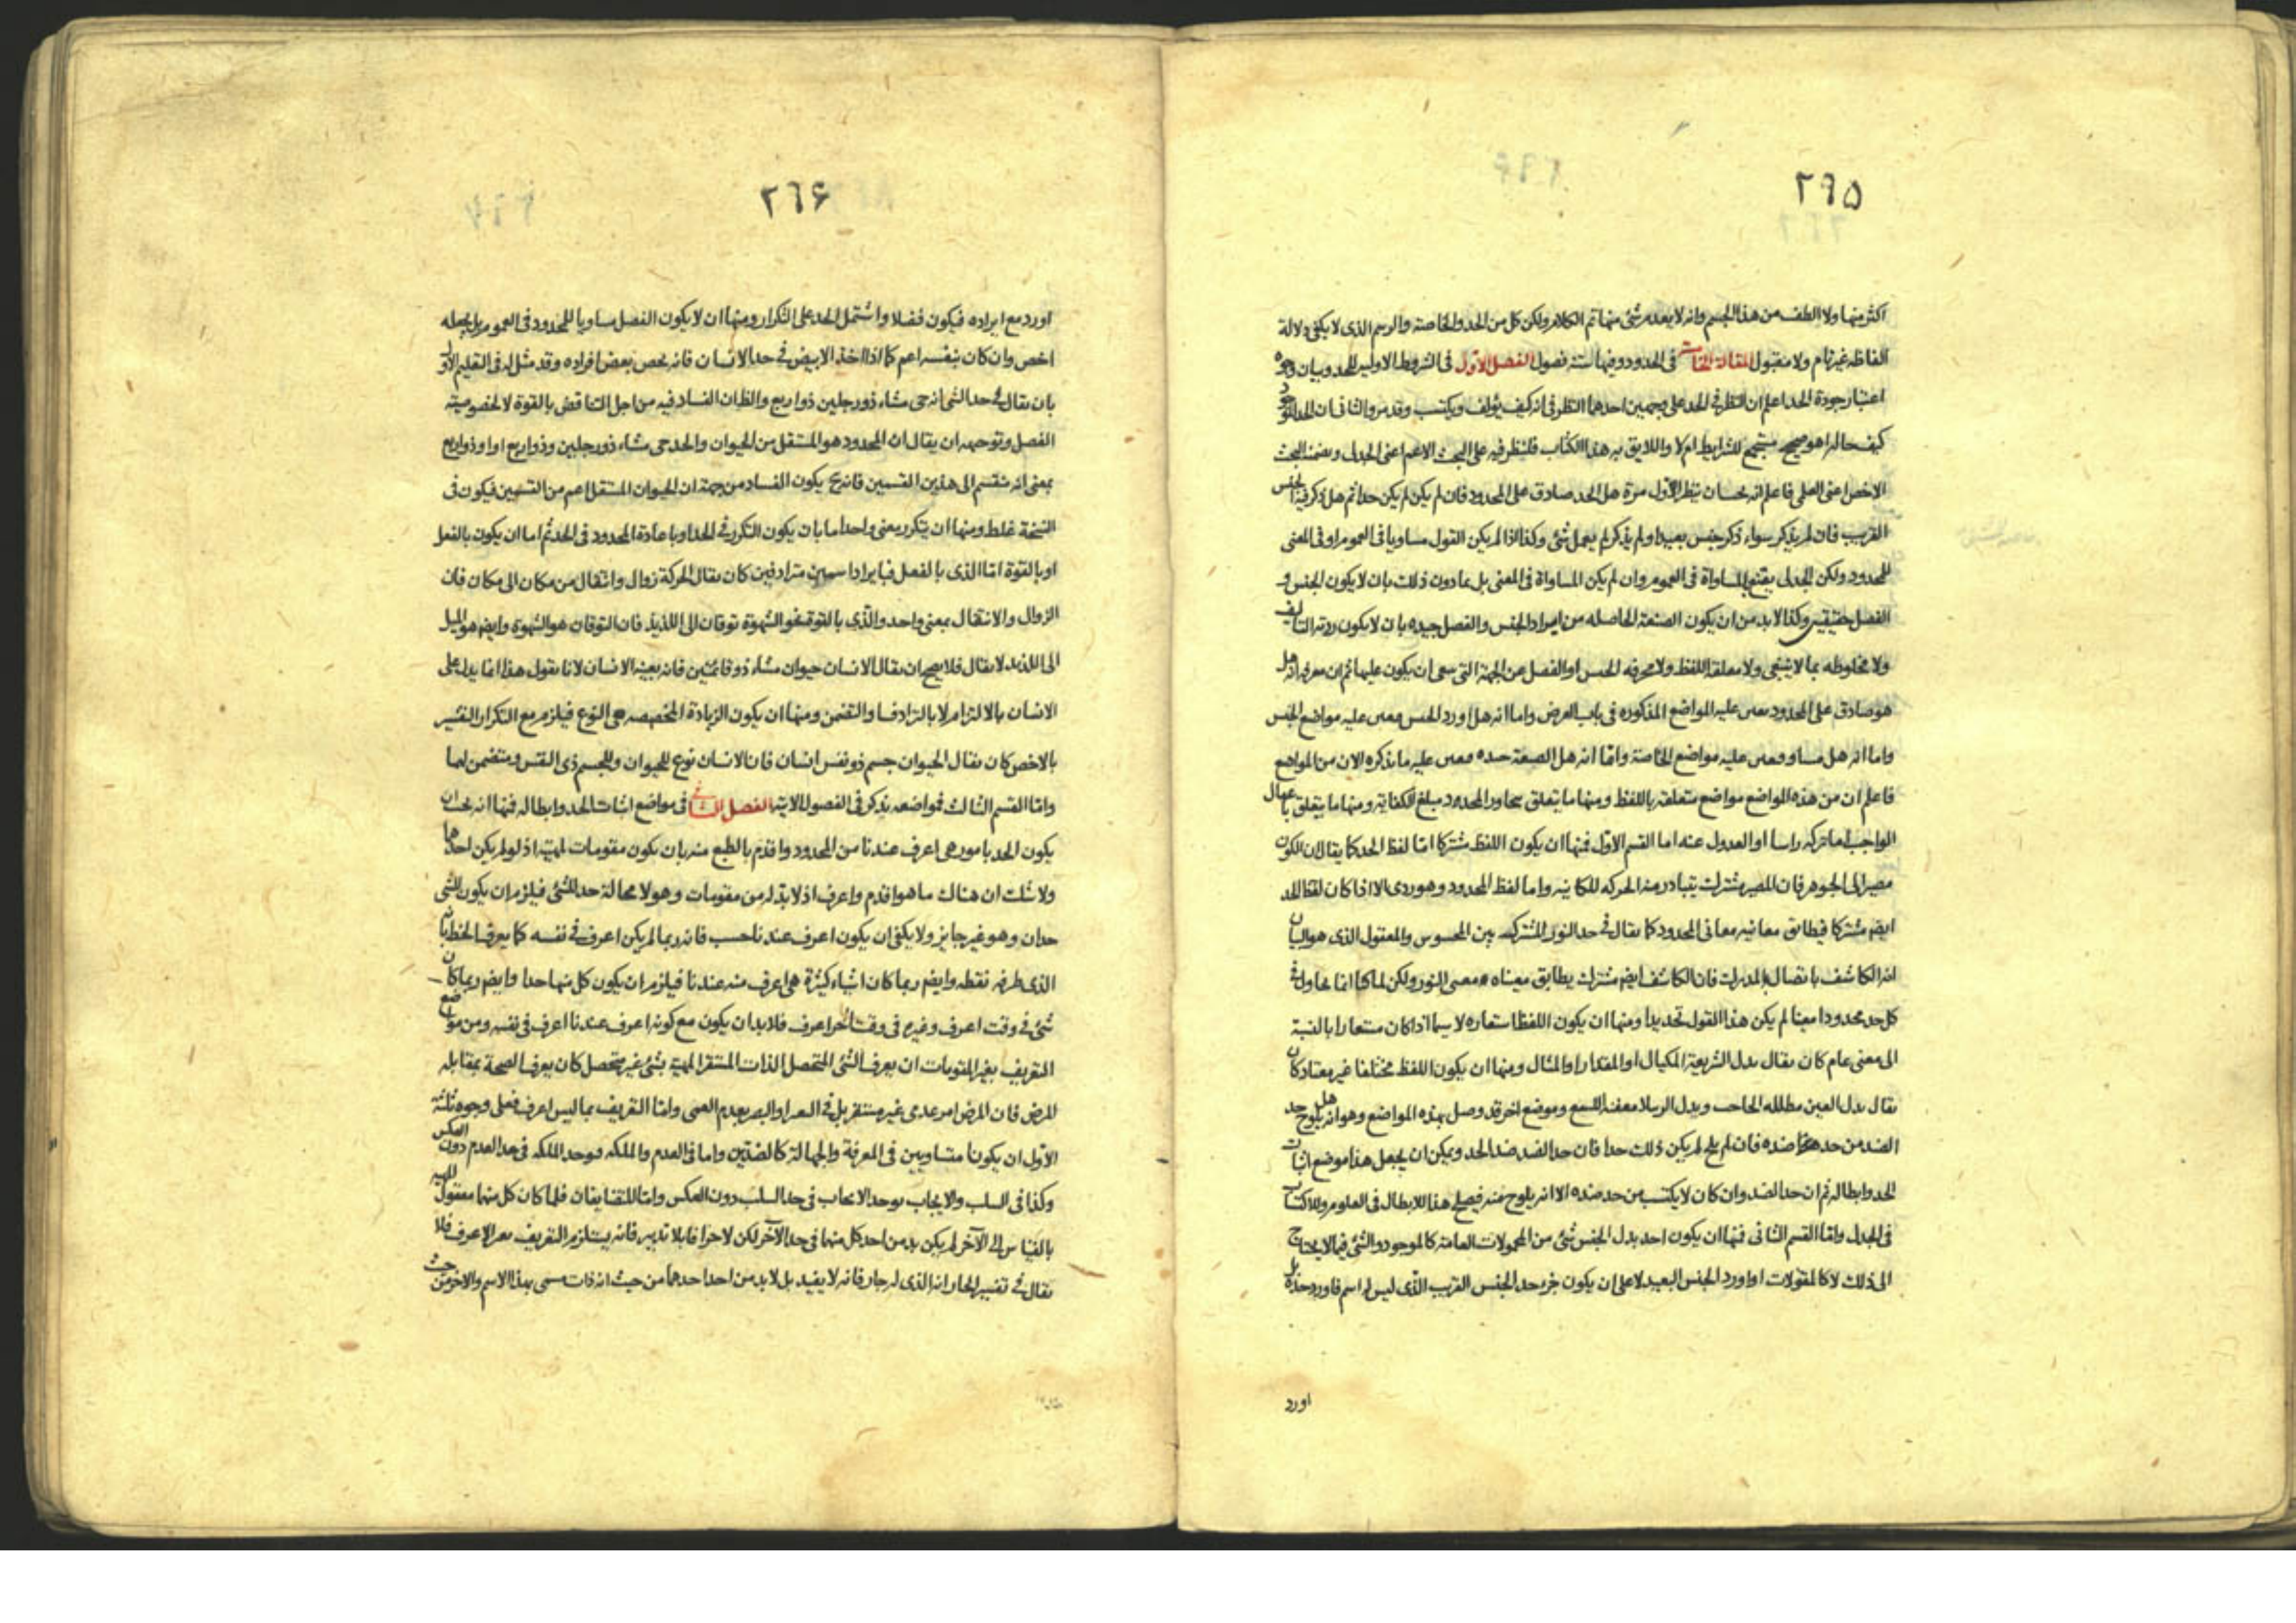 ٢٦٥
اكثر منها ولا الطف من هذا الجسم وانه لا بعده شئ منها تم الكلام ولكن كل من الحد والخاصة والرسم الذى لا يكفى دلالة
الفاظه غير تام ولا مقبول المقالة الخامسة فى الحدود وفيها ستة فصول الفصل الاول فى الشروط الاولية للحد وبيان وجوه
اعتبار جودة الحد اعلم ان النظر فى الحد على وجهين احدهما النظر فى انه كيف يؤلف ويكتسب وقد مر والثانى ان الحد الموجود
كيف حاله اهو صحيح مستجمع للشرايط ام لا واللايق به هذا الكتاب فلينظر فيه على البحث الاعم اعنى الجدلى ويضمنه البحث
الاخص اعنى العلمى فاعلم انه يجب ان ينظر الاول مرة هل الحد صادق على المحدود فان لم يكن لم يكن حدا ثم هل ذكر فيه الجنس
القريب فان لم يذكر سواء ذكر جنس بعيد او لم يذكر لم يعمل شئ وكذا اذا لم يكن القول مساويا فى العموم او فى المعنى
للمحدود ولكن الجدلى يقتنع بالمساواة فى العموم وان لم يكن المساواة فى المعنى بل بما دون ذلك بان لا يكون الجنس و
الفصل حقيقيين وكذا لا بد من ان يكون الصنعة الحاصله من ايراد الجنس والفصل جيده بان لا يكون ردية التاليف
ولا مخلوطه بما لا ينبغى ولا مغلقة اللفظ ولا محرفه الجنس او الفصل عن الجهة التى ينبغى ان يكون عليها ثم ان معرفة انه هل
هو صادق على المحدود يعين عليه المواضع المذكوره فى باب العرض واما انه هل اورد الجنس فيعين عليه مواضع الجنس
واما انه هل مساو فيعين عليه مواضع الخاصة واما انه هل الصنعة جيده فيعين عليه ما نذكره الان من المواضع
فاعلم ان من هذه المواضع مواضع متعلقة باللفظ ومنها ما يتعلق بتجاوز المحدود مبلغ الكفاية ومنها ما يتعلق باهمال
الواجب اما تركه راسا او العدول عنه اما القسم الاول فمنها ان يكون اللفظ مشتركا اما لفظ الحد كما يقال ان الكون
مصير الى الجوهر فان المصير مشترك يتبادر منه الحركه المكانيه واما لفظ المحدود وهو ردى الا اذا كان لفظ الحد
ايضم مشتركا فيطابق معانيه معانى المحدود كما يقال فى حد النور المشترك بين المحسوس والمعقول الذى هو البيان
انه الكاشف باتصال بالمدرك فان الكاشف ايضم مشترك يطابق معيناه معنى النور ولكن لما كنا انما نحاول فى
كل حد محدودا معينا لم يكن هذا القول تحديدا ومنها ان يكون اللفظ استعاره لا سيما اذا كان مستعارا بالنسبة
الى معنى عام كان يقال بدل الشريعة المكيال او المقدار او المثال ومنها ان يكون اللفظ مختلفا غير معتاد كان
يقال بدل العين مظلله الحاجب وبدل الرتيلا معفنة اللسع وموضع اخر قد وصل بهذه المواضع وهو انه هل يلوح حد
الضد من حد ضده فان لم يلح لم يكن ذلك حدا فان حد الضد ضد الحد ويمكن ان يجعل هذا موضع اثبات
الحد وابطاله ثم ان حد الضد وان كان لا يكتسب من حد ضده الا انه يلوح منه فيصلح هذا للابطال فى العلوم وللاكتساب
فى الجدل واما القسم الثانى فمنها ان يكون احد بدل الجنس شئ من المحمولات العامة كالموجود والشئ فيما لا يحتاج
الى ذلك لا كالمقولات او اورد الجنس البعيد لا على ان يكون جزء حد الجنس القريب الذى ليس له اسم فاورد حده بل
اورد
٢٦٦
اورد مع ايراده فيكون فضلا واشتمل الحد على التكرار ومنها ان لا يكون الفصل مساويا للمحدود فى العموم بل يجعله
اخص وان كان بنفسه اعم كما اذا اخذ الابيض فى حد الانسان فانه يخص بعض افراده وقد مثل له فى التعليم الاول
بان يقال فى حد الشئ انه حى مشاء ذو رجلين ذو اربع والظ ان الفساد فيه من اجل التناقض بالقوة لا لخصوصيته
الفصل وتوجيهه ان يقال ان المحدود هو المستقل من الحيوان والحد حى مشاء ذو رجلين وذو اربع او او ذو اربع
بمعنى انه منقسم الى هذين القسمين فانه ح يكون الفساد من جهة ان الحيوان المستقل اعم من القسمين فيكون فى
النسخة غلط ومنها ان يتكرر معنى واحد اما بان يكون التكرر فى الحد او باعادة المحدود فى الحد ثم اما ان يكون بالفعل
او بالقوة اما الذى بالفعل فبايراد اسمين مترادفين كان يقال الحركة زوال وانتقال من مكان الى مكان فان
الزوال والانتقال بمعنى واحد والذى بالقوة نحو الشهوة توقان الى اللذيذ فان التوقان هو الشهوة وايضم هو الميل
الى اللذيذ لا يقال فلا يصح ان يقال الانسان حيوان مشاء ذو قائمتين فانه بعينه الانسان لانا نقول هذا انما يدل على
الانسان بالالتزام لا بالترادف او التضمن ومنها ان يكون الزيادة المخصصه هى النوع فيلزم مع التكرار التفسير
بالاخص كان يقال الحيوان جسم ذو نفس انسان فان الانسان نوع للحيوان وللجسم ذى النفس ومتضمن لهما
واما القسم الثالث فمواضعه يذكر فى الفصول الاتية الفصل الثانى فى مواضع اثبات الحد وابطاله فمنها انه يجب ان
يكون الحد بامور هى اعرف عندنا من المحدود واقدم بالطبع منه بان يكون مقومات لمهيته اذ لو لم يكن احدهما
ولا شك ان هناك ما هو اقدم واعرف اذ لا بد له من مقومات وهو لا محالة حد للشئ فيلزم ان يكون للشئ
حدان وهو غير جايز ولا يكفى ان يكون اعرف عندنا حسب فانه ربما لم يكن اعرف فى نفسه كما يعرف الخط بان
الذى طرفه نقطه وايضم ربما كان اشياء كثيرة هى اعرف منه عندنا فيلزم ان يكون كل منها حدا وايضم ربما كان
شئ فى وقت اعرف وغيره فى وقت اخر اعرف فلا بد ان يكون مع كونه اعرف عندنا اعرف فى نفسه ومن مواضع
التعريف بغير المقومات ان يعرف الشئ المتحصل الذات المستقر المهية بشئ غير متحصل كان يعرف الصحة بمقابله
المرض فان المرض امر عدمى غير مستقر بل فى البصر بعدم العمى واما التعريف بما ليس اعرف فعلى وجوه ثلثة
الاول ان يكونا متساويين فى المعرفة والجهالة كالضدين واما فى العدم والملكه فيوخذ الملكه فى حد العدم دون العكس
وكذا فى السلب والايجاب يوخذ الايجاب فى حد السلب دون العكس واما المتضايفان فلما كان كل منهما معقول المهية
بالقياس الى الآخر لم يكن بد من اخذ كل منهما فى حد الآخر لكن لا جزافا بلا تدبير فانه يستلزم التعريف بغير الاعرف فلا
يقال فى تفسير الجار انه الذى له جار فانه لا يفيد بل لا بد من اخذ احدهما من حيث انه ذات مسمى بهذا الاسم والاخر من حيث